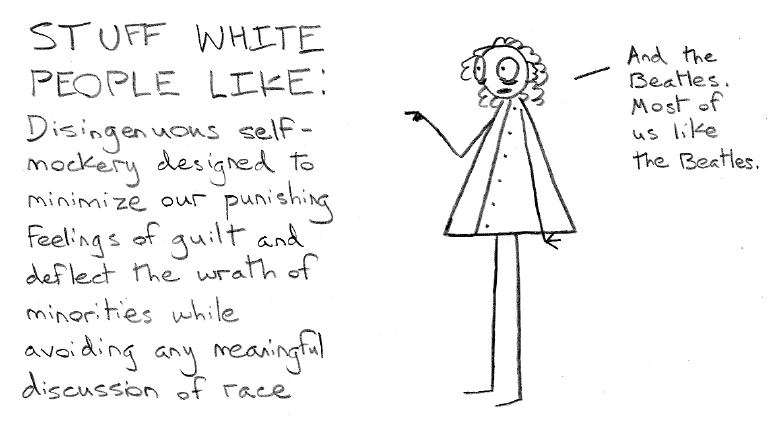 STUFF WHITE
PEOPLE LIKE:
Disingenuous self-
mockery designed to
minimize our punishing
feelings of guilt and
deflect the wrath of
minorities while
avoiding any meaningful
discussion of race
And the
Beatles.
Most of
us like
the Beatles.